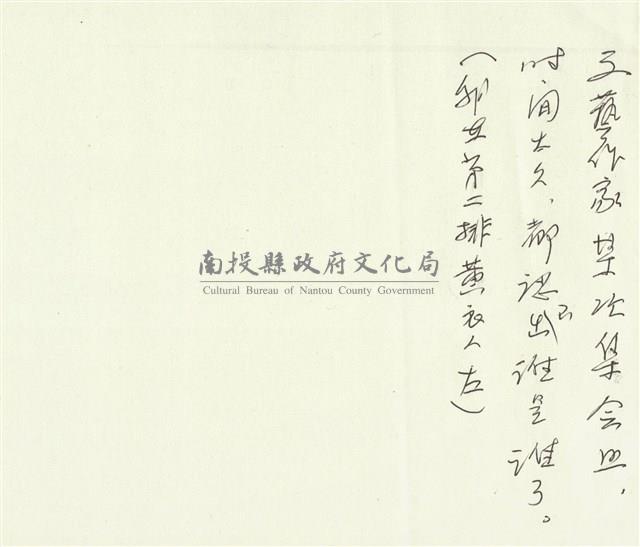 文藝作家某次集会照，
时间太久，都認不出誰是誰了。
（我在第二排黄衣人左）
南投縣政府文化局
Cultural Bureau of Nantou County Government